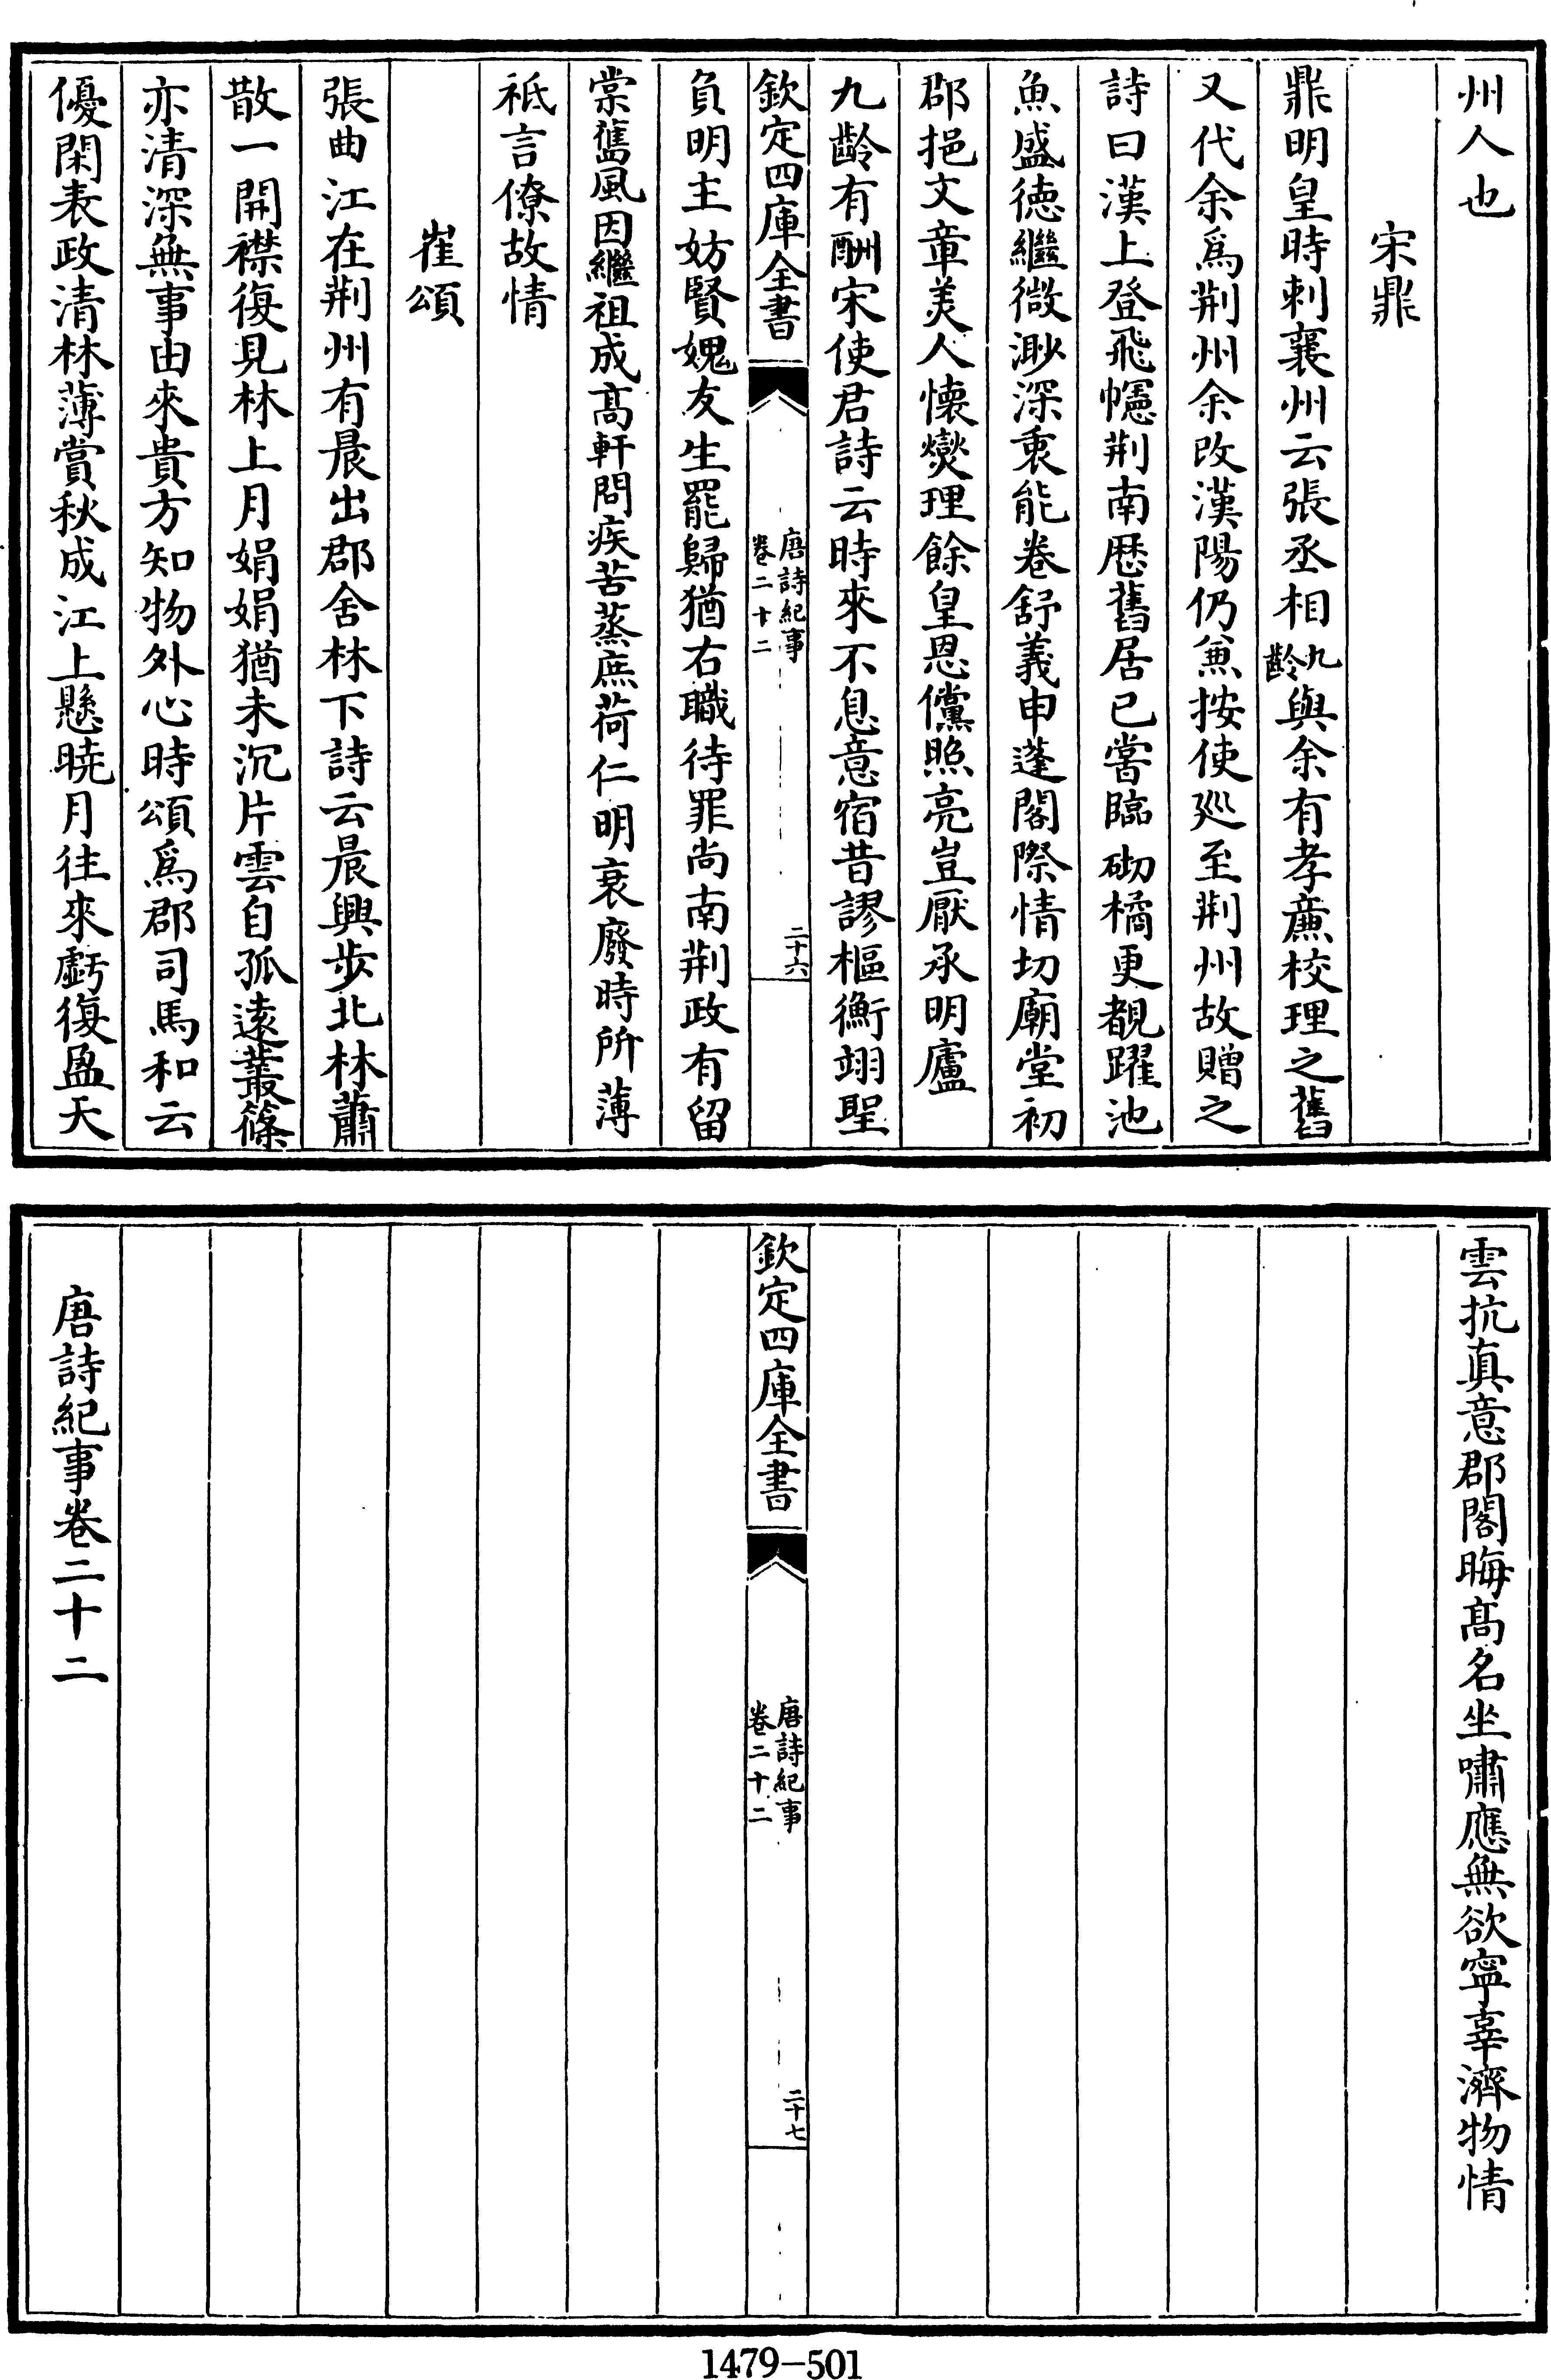 州人也
宋鼎
鼎明皇時刺襄州云張丞相九齡與余有孝亷校理之舊
又代余爲荆州余改漢陽仍兼按使廵至荆州故贈之
詩曰漢上登飛幰荆南歴舊居已嘗臨砌橘更覩躍池
魚盛德繼微渺深衷能卷舒義申蓬閣際情切廟堂初
郡挹文章美人懷燮理餘皇恩儻照亮豈厭承明廬
九齡有酬宋使君詩云時來不息意宿昔謬樞衡翊聖
欽定四庫全書
唐詩紀事
卷二十二
二十六
負明主妨賢媿友生罷歸猶右職待罪尚南荆政有留
棠舊風因繼祖成髙軒問疾苦蒸庶荷仁明衰廢時所薄
祇言僚故情
崔頌
張曲江在荆州有晨出郡舍林下詩云晨興步北林蕭
散一開襟復見林上月娟娟猶未沉片雲自孤遠叢篠
亦清深無事由來貴方知物外心時頌爲郡司馬和云
優閑表政清林薄賞秋成江上懸曉月往來虧復盈天
雲抗真意郡閣晦髙名坐嘯應無欲寜辜濟物情
欽定四庫全書
唐詩紀事
卷二十二
二十七
唐詩紀事卷二十二
1479-501